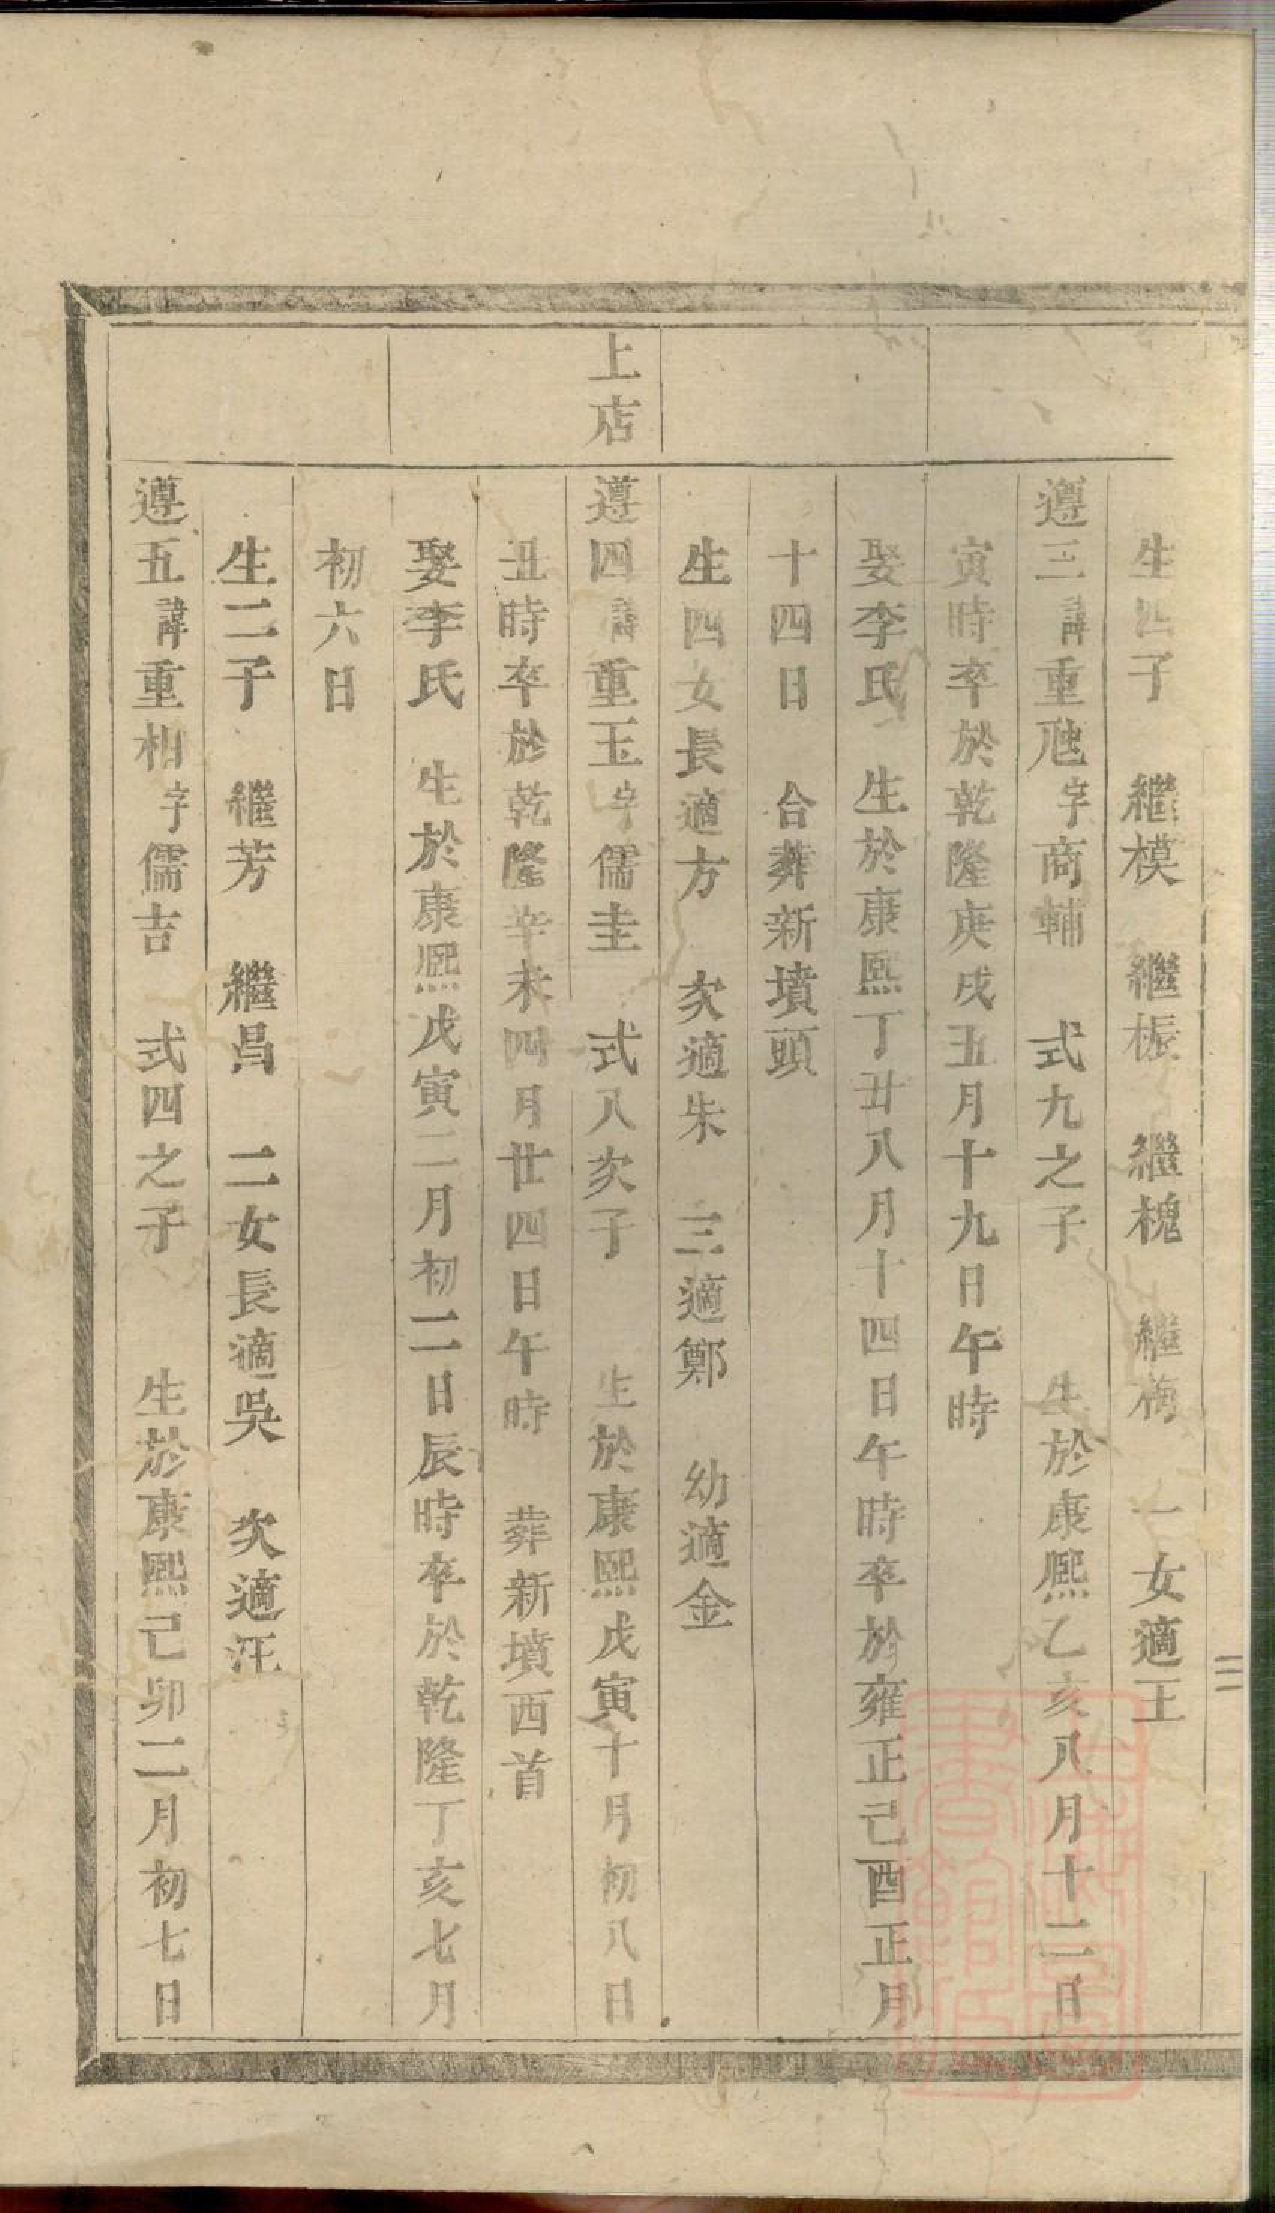 生四子　繼模　繼桭　繼槐　繼梅　一女適王
遵三諱重虺字商輔　式九之子　生於康熙乙亥八月十二日
寅時卒於乾隆庚戌五月十九日午時
娶李氏　生於康熙丁丑八月十四日午時卒於雍正己酉正月
十四日　合葬新墳頭
生四女長適方　次適朱　三適鄭　幼適金
上店
遵四諱重玉字儒圭　式八次子　生於康熙戊寅十月初八日
丑時卒於乾隆辛未四月廿四日午時　葬新墳西首
娶李氏　生於康熙戊寅二月初二日辰時卒於乾隆丁亥七月
初六日
生二子　繼芳　繼昌　二女長適吳　次適汪
遵五諱重相字儒吉　式四之子　生於康熙己卯二月初七日